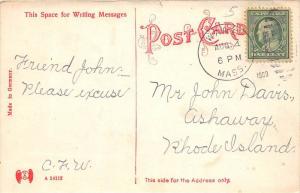 This Space for Writing Messages
POST CARD
6 PM
MASS.
1909
Friend John-
Please excuse
C.F.W.
Mr John Davis,
Ashaway,
Rhode Island.
Made in Germany.
This side for the Address only.